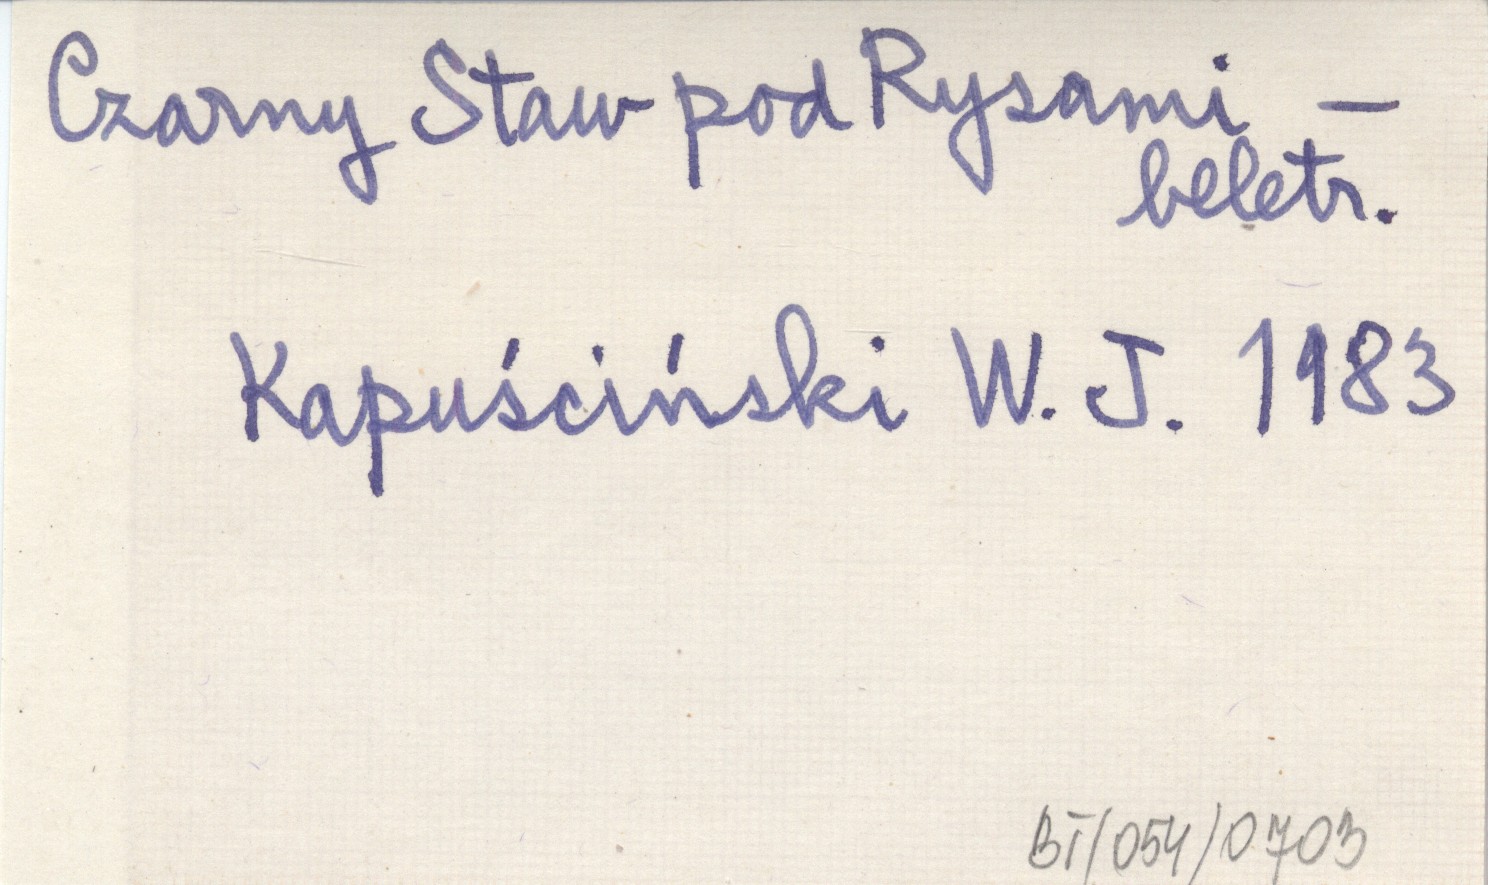 Czarny Staw pod Rysami –
beletr.
Kapuściński W. J. 1983
BT/054/0703